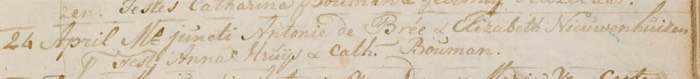 zen. Testes Catharina Bouman &
24 April Mt juncti Antonie de Brée & Elizabeth Nieuwenhuisen
Test Anna Kruijs & Cath. Bouman.